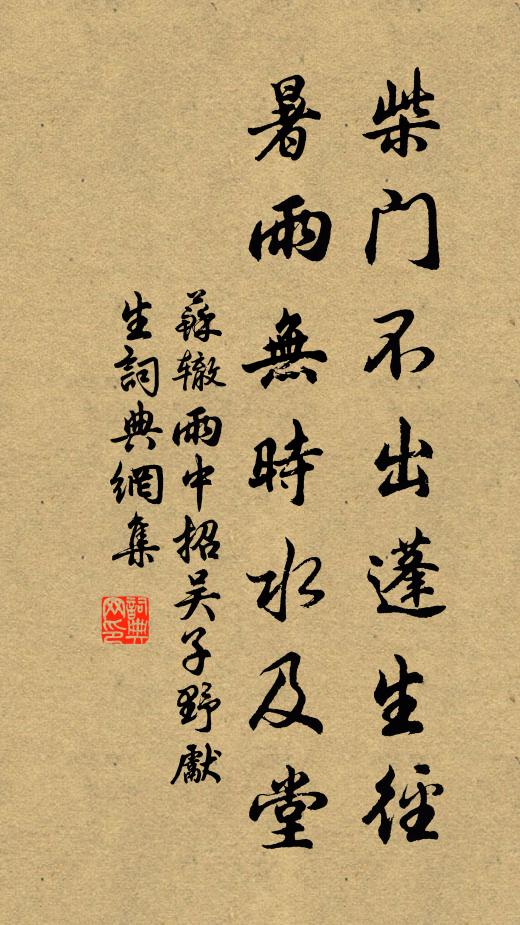 柴门不出蓬生径
暑雨無時水及堂
蘇辙雨中招吴子野獻
生詞典網集
詞典网印